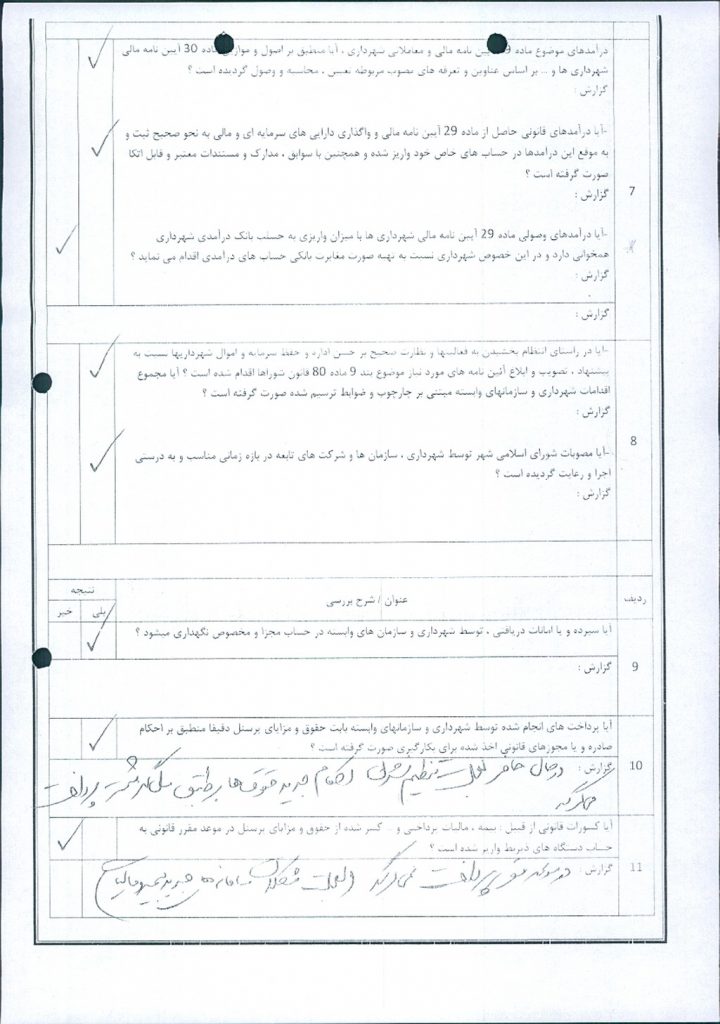 درآمدهای موضوع ماده 29 آیین نامه مالی و معاملاتی شهرداری ، آیا منطبق بر اصول و موازین ماده 30 آیین نامه مالی
شهرداری ها و ... بر اساس عناوین و تعرفه های مصوب مربوطه تعیین ، محاسبه و وصول گردیده است ؟
گزارش :
-آیا درآمدهای قانونی حاصل از ماده 29 آیین نامه مالی و واگذاری دارایی های سرمایه ای و مالی به نحو صحیح ثبت و
به موقع این درآمدها در حساب های خاص خود واریز شده و همچنین با سوابق ، مدارک و مستندات معتبر و قابل اتکا
صورت گرفته است ؟
گزارش :
7
-آیا درآمدهای وصولی ماده 29 آیین نامه مالی شهرداری ها با میزان واریزی به حساب بانک درآمدی شهرداری
همخوانی دارد و در این خصوص شهرداری نسبت به تهیه صورت مغایرت بانکی حساب های درآمدی اقدام می نماید ؟
گزارش :
گزارش :
-آیا در راستای انتظام بخشیدن به فعالیتها و نظارت صحیح بر حسن اداره و حفظ سرمایه و اموال شهرداریها نسبت به
پیشنهاد ، تصویب و ابلاغ آئین نامه های مورد نیاز موضوع بند 9 ماده 80 قانون شوراها اقدام شده است ؟ آیا مجموع
اقدامات شهرداری و سازمانهای وابسته مبتنی بر چارچوب و ضوابط ترسیم شده صورت گرفته است ؟
گزارش :
8
-آیا مصوبات شورای اسلامی شهر توسط شهرداری ، سازمان ها و شرکت های تابعه در بازه زمانی مناسب و به درستی
اجرا و رعایت گردیده است ؟
گزارش :
ردیف عنوان / شرح بررسی نتیجه
بلی خیر
آیا سپرده و یا امانات دریافتی ، توسط شهرداری و سازمان های وابسته در حساب مجزا و مخصوص نگهداری میشود ؟
9 گزارش :
آیا پرداخت های انجام شده توسط شهرداری و سازمانهای وابسته بابت حقوق و مزایای پرسنل دقیقا منطبق بر احکام
صادره و یا مجوزهای قانونی اخذ شده برای بکارگیری صورت گرفته است ؟
10 گزارش : در حال حاضر بعلت تنظیم نشدن احکام جدید حقوق ها بر طبق سال گذشته پرداخت
میگردد
آیا کسورات قانونی از قبیل : بیمه ، مالیات پرداختی و ... کسر شده از حقوق و مزایای پرسنل در موعد مقرر قانونی به
حساب دستگاه های ذیربط واریز شده است ؟
11 گزارش : در موعد مقرر پرداخت می گردد بعلت مشکلات سامانه های جدید بیمه و مالیات